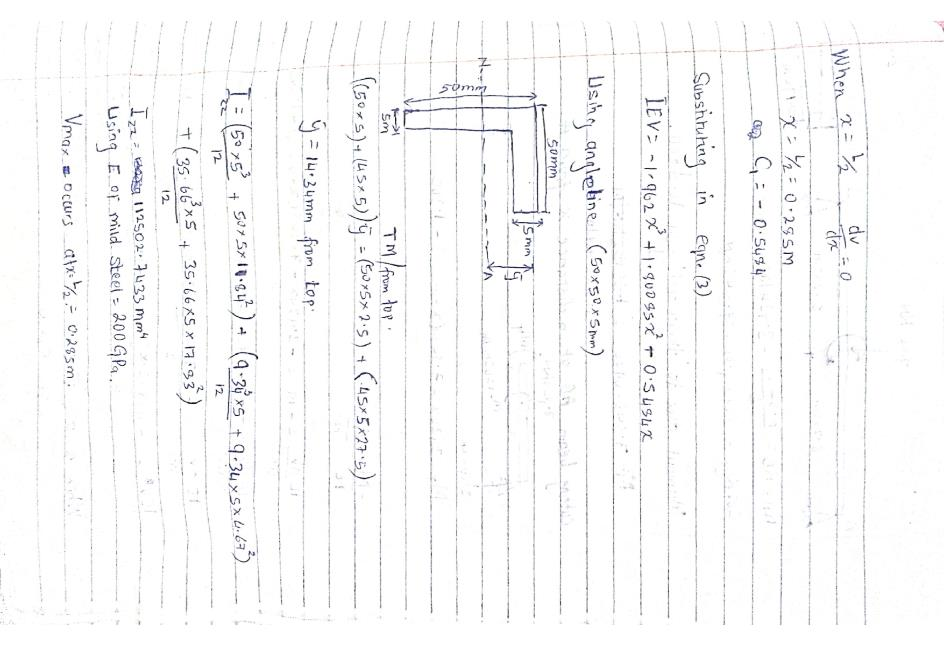 When x = L/2   dv/dx = 0
x = L/2 = 0.285m
C₁ = - 0.5484
Substituting in eqn.(3)
IEV = - 1.962x³ + 1.90095x² + 0.5484x
Using angleline (50x50x5mm)
50mm
5mm
ȳ
50mm
N
A
5m
TM/from top.
((50x5)+(45x5))ȳ = (50x5x2.5) + (45x5x27.5)
ȳ = 14.34mm from top.
I_zz = (50x5³/12 + 50x5x11.84²) + (9.34³x5/12 + 9.34x5x4.67²)
+ (35.66³x5/12 + 35.66x5x17.93²)
I_zz = 112502.7433 mm⁴
Using E of mild steel = 200GPa.
Vmax occurs at x=L/2 = 0.285m.